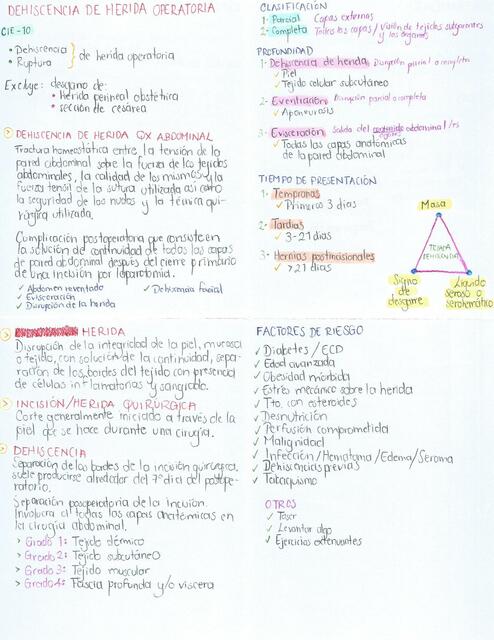 DEHISCENCIA DE HERIDA OPERATORIA
CIE-10
• Dehiscencia
• Ruptura
de herida operatoria
Excluye: desgarro de:
• Herida perineal obstétrica
• sección de cesárea
DEHISCENCIA DE HERIDA QX ABDOMINAL
Fractura homeostática entre la tensión de la
pared abdominal sobre la fuerza de los tejidos
abdominales, la calidad de los mismos y la
fuerza tensil de la sutura utilizada así como
la seguridad de los nudos y la técnica qui-
rúrgica utilizada.
Complicación postoperatoria que consiste en
la solución de continuidad de todas las capas
de pared abdominal después del cierre primario
de una incisión por laparotomía.
✓ Abdomen reventado
✓ Dehiscencia fascial
✓ Evisceración
✓ Disrupción de la herida
CLASIFICACIÓN
1- Parcial Capas externas
2- Completa Todas las capas / Visión de tejidos subyacentes
y los órganos
PROFUNDIDAD
1- Dehiscencia de herida Disrupción parcial o completa
✓ Piel
✓ Tejido celular subcutáneo
2- Eventración Disrupción parcial o completa
✓ Aponeurosis
3- Evisceración Salida del contenido abdominal
✓ Todas las capas anatómicas
de la pared abdominal
TIEMPO DE PRESENTACIÓN
1- Tempranas
✓ Primeros 3 días
2- Tardías
✓ 3-21 días
3- Hernias postincisionales
✓ >21 días
Masa
TRIADA
DEHISCENCIA
Signo
de
desgarre
Líquido
seroso o
serohemático
HERIDA
Disrupción de la integridad de la piel, mucosa
o tejido, con solución de la continuidad, sepa-
ración de los bordes del tejido con presencia
de células inflamatorias y sangrado.
INCISIÓN/HERIDA QUIRÚRGICA
Corte generalmente iniciado a través de la
piel que se hace durante una cirugía.
DEHISCENCIA
Separación de los bordes de la incisión quirúrgica,
suele producirse alrededor del 7º día del postope-
ratorio.
Separación postoperatoria de la incisión.
Involucra a todas las capas anatómicas en
la cirugía abdominal.
> Grado 1: Tejido dérmico
> Grado 2: Tejido subcutáneo
> Grado 3: Tejido muscular
> Grado 4: Fascia profunda y/o víscera
FACTORES DE RIESGO
✓ Diabetes / ECD
✓ Edad avanzada
✓ Obesidad mórbida
✓ Estrés mecánico sobre la herida
✓ Tto. con esteroides
✓ Desnutrición
✓ Perfusión comprometida
✓ Malignidad
✓ Infección/Hematoma/Edema/Seroma
✓ Dehiscencias previas
✓ Tabaquismo
OTROS
✓ Toser
✓ Levantar algo
✓ Ejercicios extenuantes